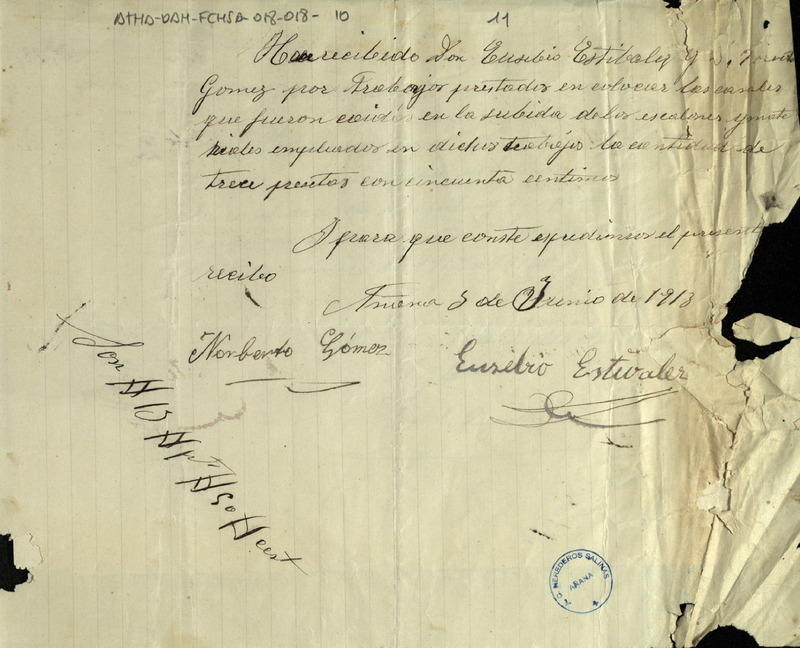 ATHA-DAH-FCHSA-018-018- 10
11
Ha recibido Don Eusebio Estibalez y D.
Gomez por trabajos prestados en colocar los canales
que fueron caidos en la subida de los escalones y mate
riales empleados en dichos trabajos la cantidad de
trece pesetas con cincuenta centimos
I para que conste expedimos el present
recibo
Añana 5 de Junio de 1913
Norberto Gómez
Eusebio Estivalez
Son #13# 50#
HEREDEROS SALINAS
AÑANA